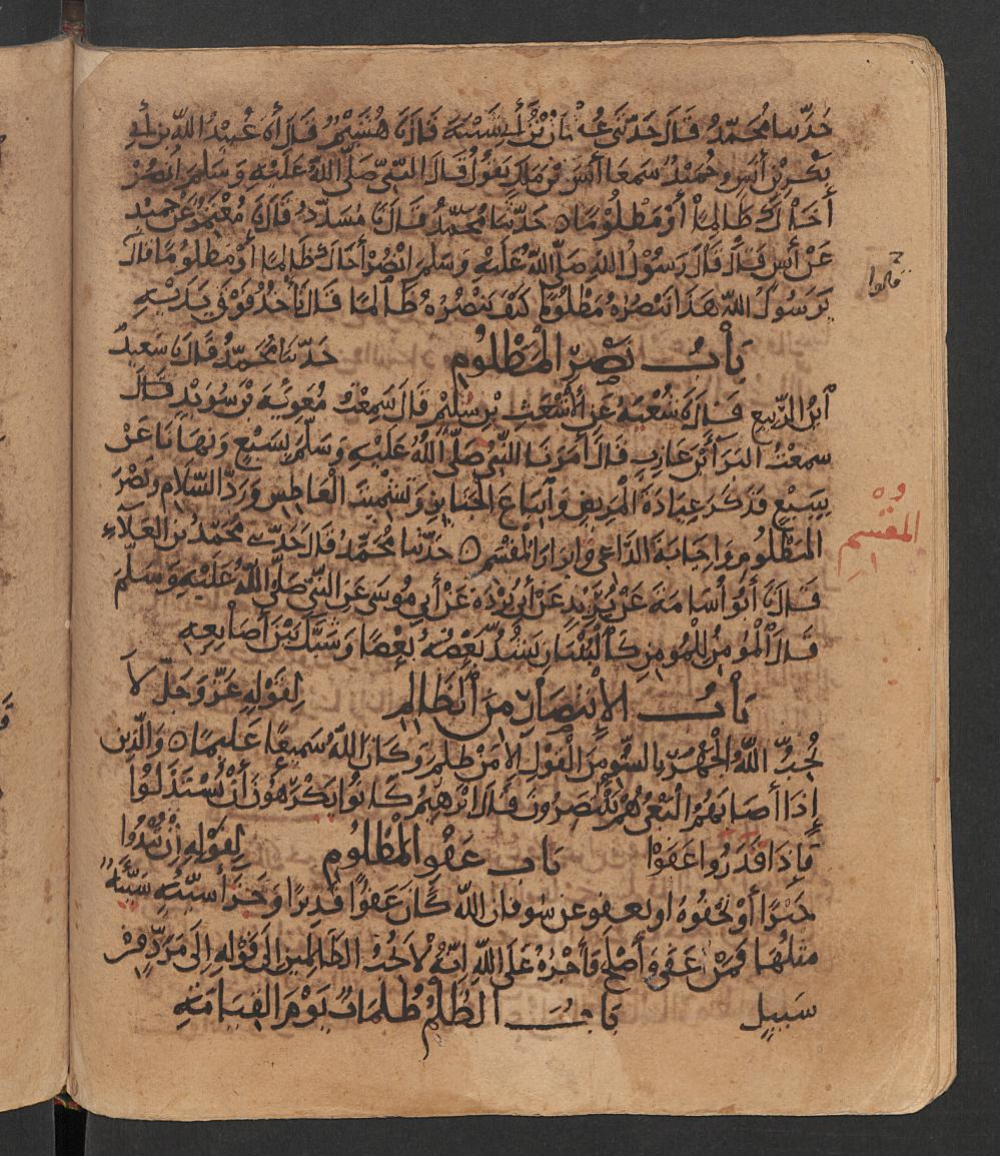 حدثنا محمد قال حدثني عثمان بن أبي شيبة قال نا هشيم قال أنا عبيد الله بن أبي
بكر بن أنس وحميد سمعا أنس بن ملك يقول قال النبي صلى الله عليه وسلم انصر
أخاك ظالما أو مظلوما ٥ حدثنا محمد قال نا مسدد قال نا معتمر عن حميد
عن أنس قال قال رسول الله صلى الله عليه وسلم انصر أخاك ظالما أو مظلوما قال
قالوا
يرسول الله هذا ننصره مظلوما كيف ننصره ظالما قال تأخذ فوق يديه
باب نصر المظلوم حدثنا محمد قال نا سعيد
ابن الربيع قال نا شعبة عن الأشعث بن سليم قال سمعت معوية بن سويد قال
سمعت البرأ بن عازب قال أمرنا النبي صلى الله عليه وسلم بسبع ونهانا عن
بسبع فذكر عيادة المريض واتباع الجنايز وتشميت العاطس ورد السلام ونصر
المقسم
المظلوم وإجابة الداعي وإبرار المقسم ٥ حدثنا محمد قال حدثني محمد بن العلاء
قال نا أبو أسامة عن بريد عن أبي بردة عن أبي موسى عن النبي صلى الله عليه وسلم
قال المؤمن للمومن كالبنيان يشد بعضه بعضا وشبك بين أصابعه
باب الإنتصار من الظالم لقوله عز وجل لا
يحب الله الجهر بالسو من القول إلا من ظلم وكان الله سميعا عليما ٥ والذين
إذا أصابهم البغي هم ينتصرون قال إبرهيم كانوا يكرهون أن يستذلوا
فإذا قدروا عفوا باب عفو المظلوم لقوله إن تبدوا
خيرا أو تخفوه او تعفو عن سو فان الله كان عفوا قديرا وجزأ سيئه سيئة
مثلها فمن عفى وأصلح فأجره على الله إنه لا يحب الظالمين إلى قوله إلى مرد من
سبيل باب الظلم ظلمات يوم القيامة